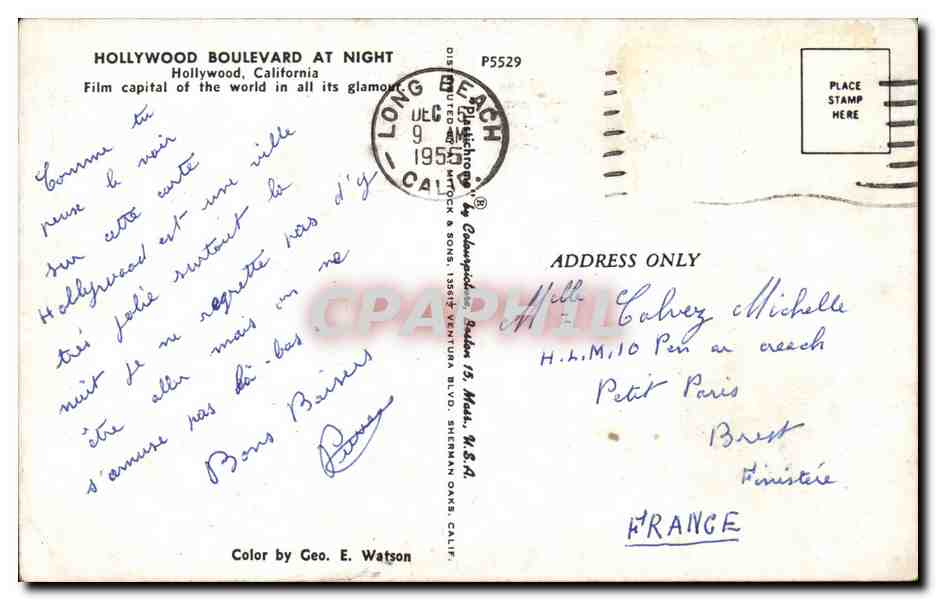 HOLLYWOOD BOULEVARD AT NIGHT
Hollywood, California
Film capital of the world in all its glamour.
Comme tu
peux le voir
sur cette carte
Hollywood est une ville
très jolie surtout la
nuit je ne regrette pas d'y
être aller mais on ne
s'amuse pas là-bas
Bons Baisers
Color by Geo. E. Watson
DISTRIBUTED BY MITOCK & SONS, 13561½ VENTURA BLVD. SHERMAN OAKS, CALIF.
"Plastichrome" ® by Colourpicture, Boston 15, Mass., U.S.A.
P5529
LONG BEACH
DEC
9 AM
1955
CALIF.
PLACE
STAMP
HERE
ADDRESS ONLY
Melle Calvez Michelle
H.L.M, 10 Pen ar creach
Petit Paris
Brest
Finistère
FRANCE
CPAPHIL